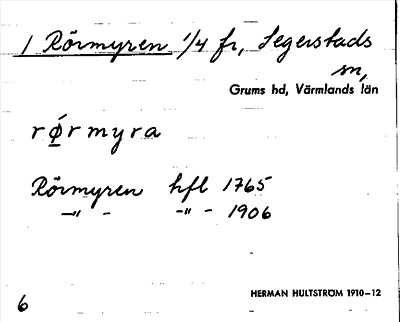 1 Rörmyren 1/4 fr, Segerstads
sn,
Grums hd, Värmlands län
rǿrmyra
Rörmyren hfl 1765
—"— -"- 1906
6
HERMAN HULTSTRÖM 1910–12